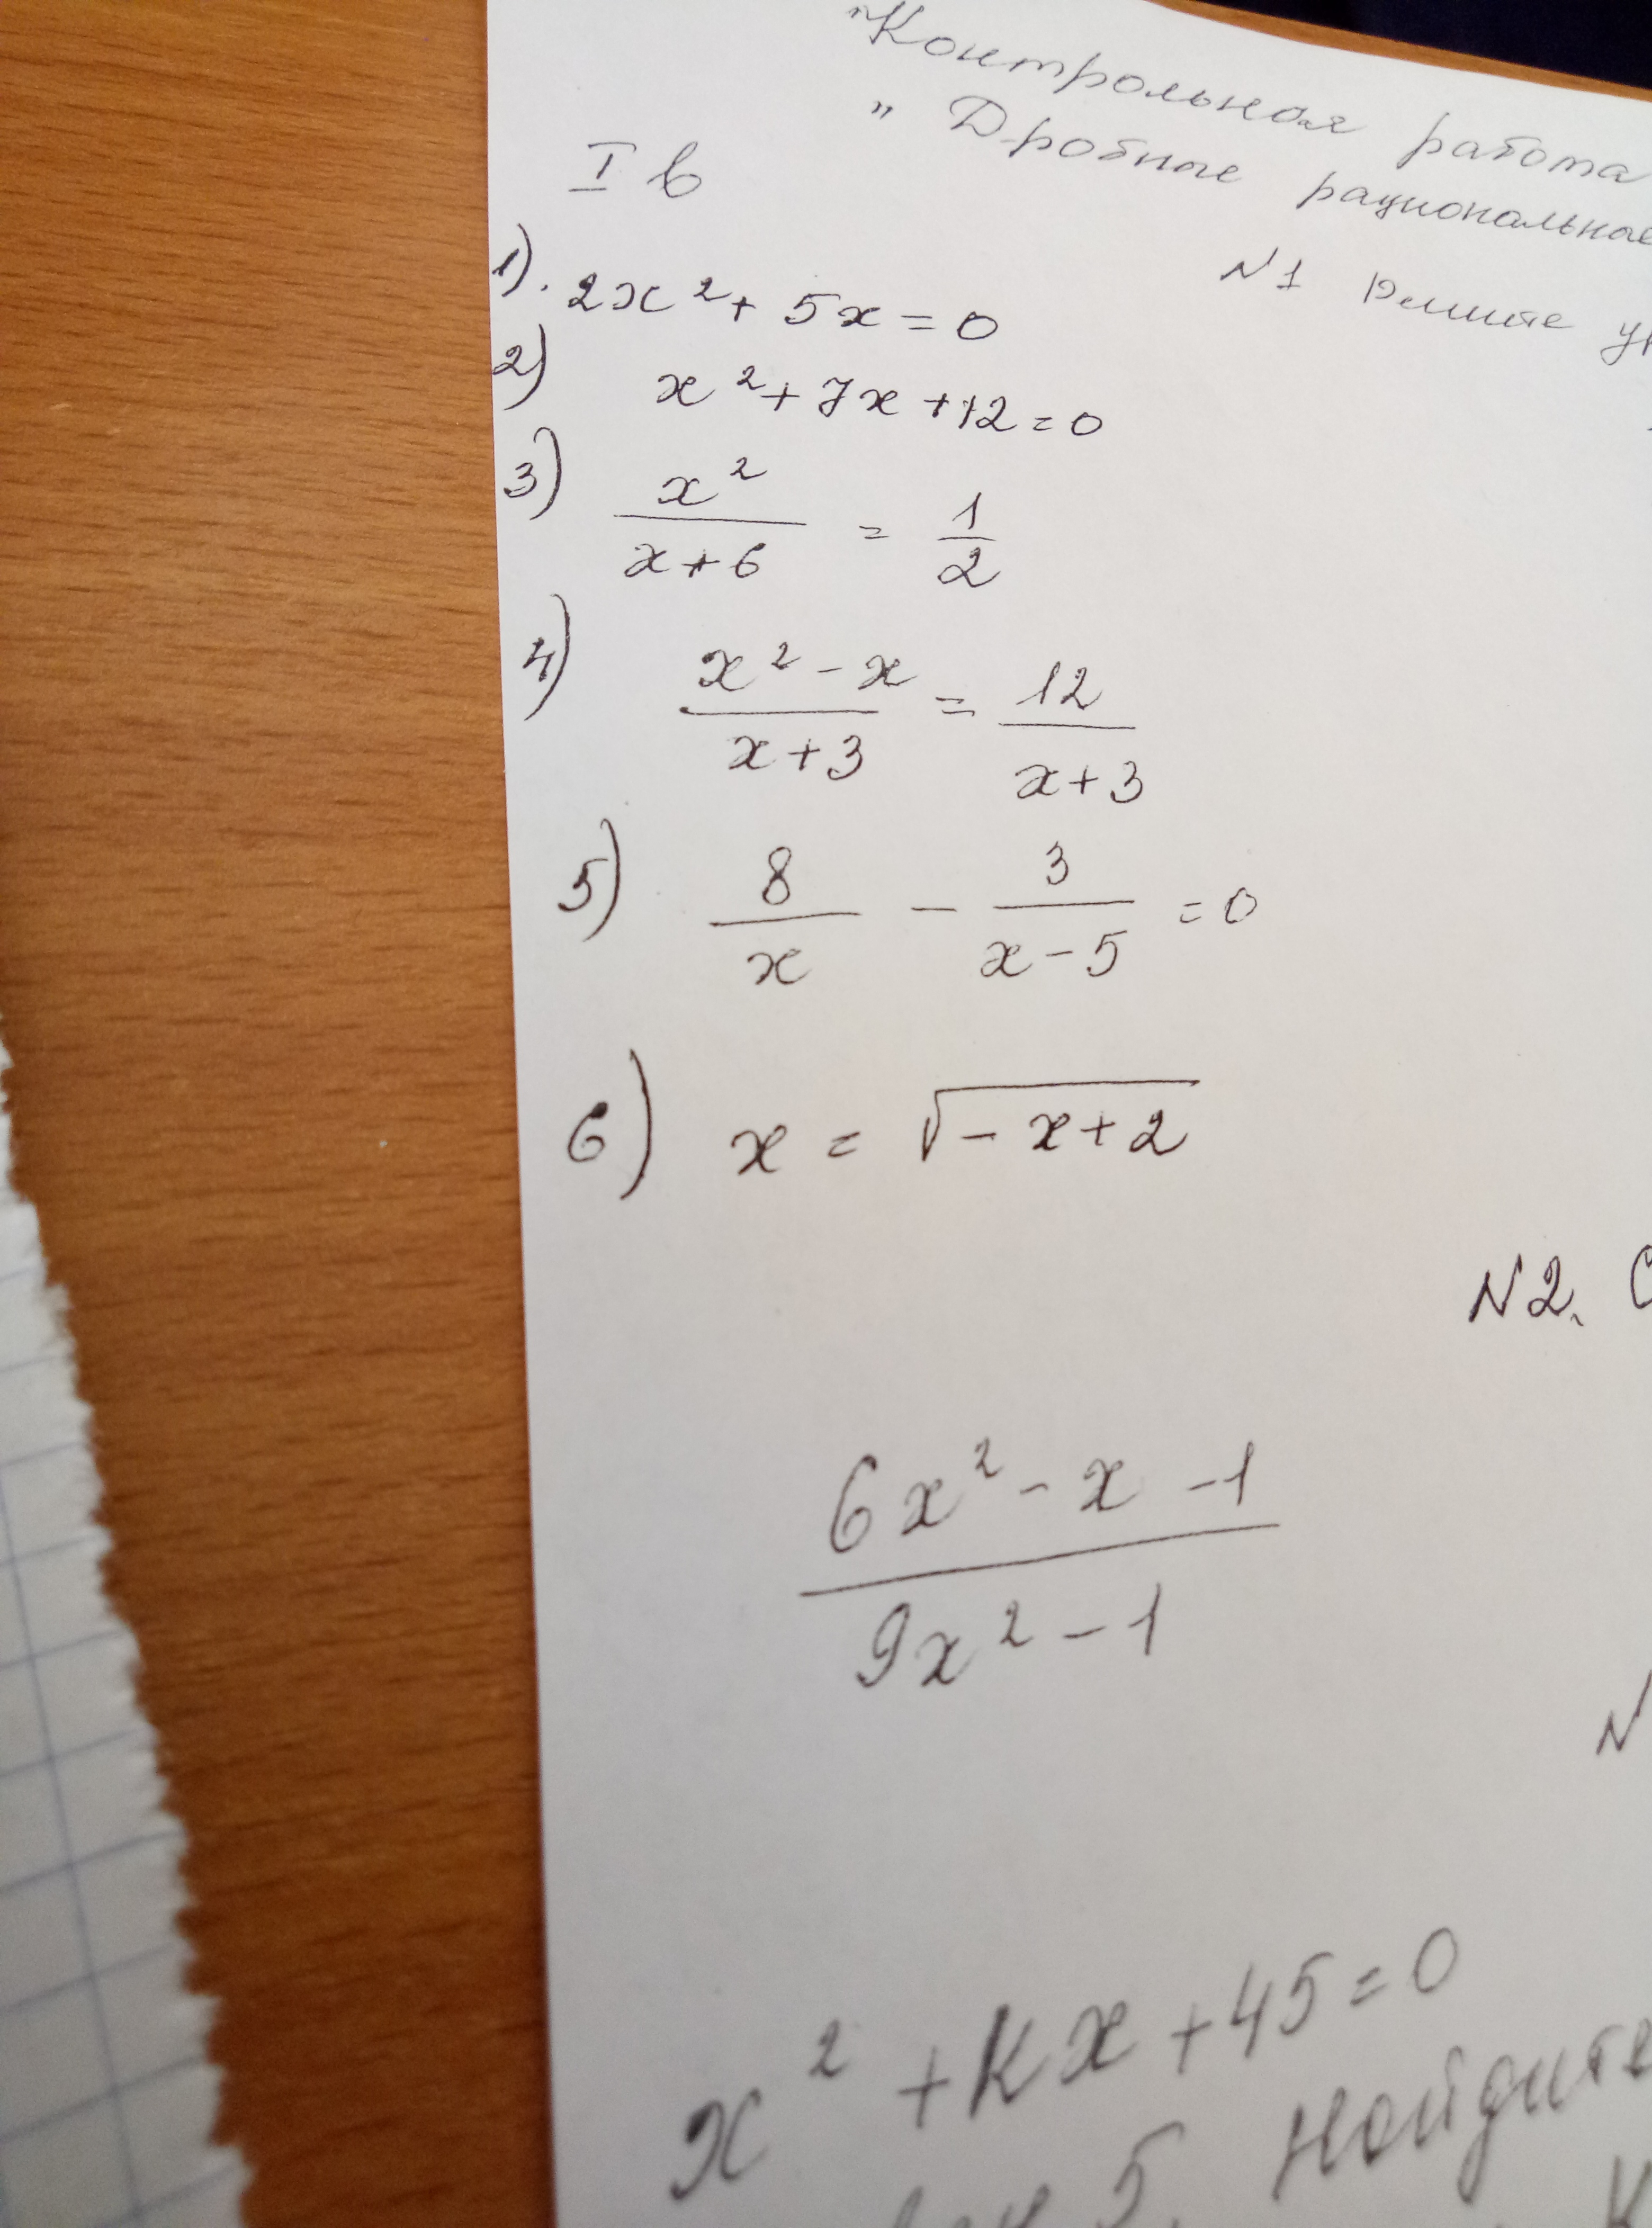 "Контрольная работа
" Дробные рациональные
I в
N1 Решите
1). 2x² + 5x = 0
2) x² + 7x + 12 = 0
3) x² / (x+6) = 1/2
4) (x² - x) / (x+3) = 12 / (x+3)
5) 8/x - 3/(x-5) = 0
6) x = √(-x+2)
N2.
(6x² - x - 1) / (9x² - 1)
N
x² + кx + 45 = 0
5. Найдите
к